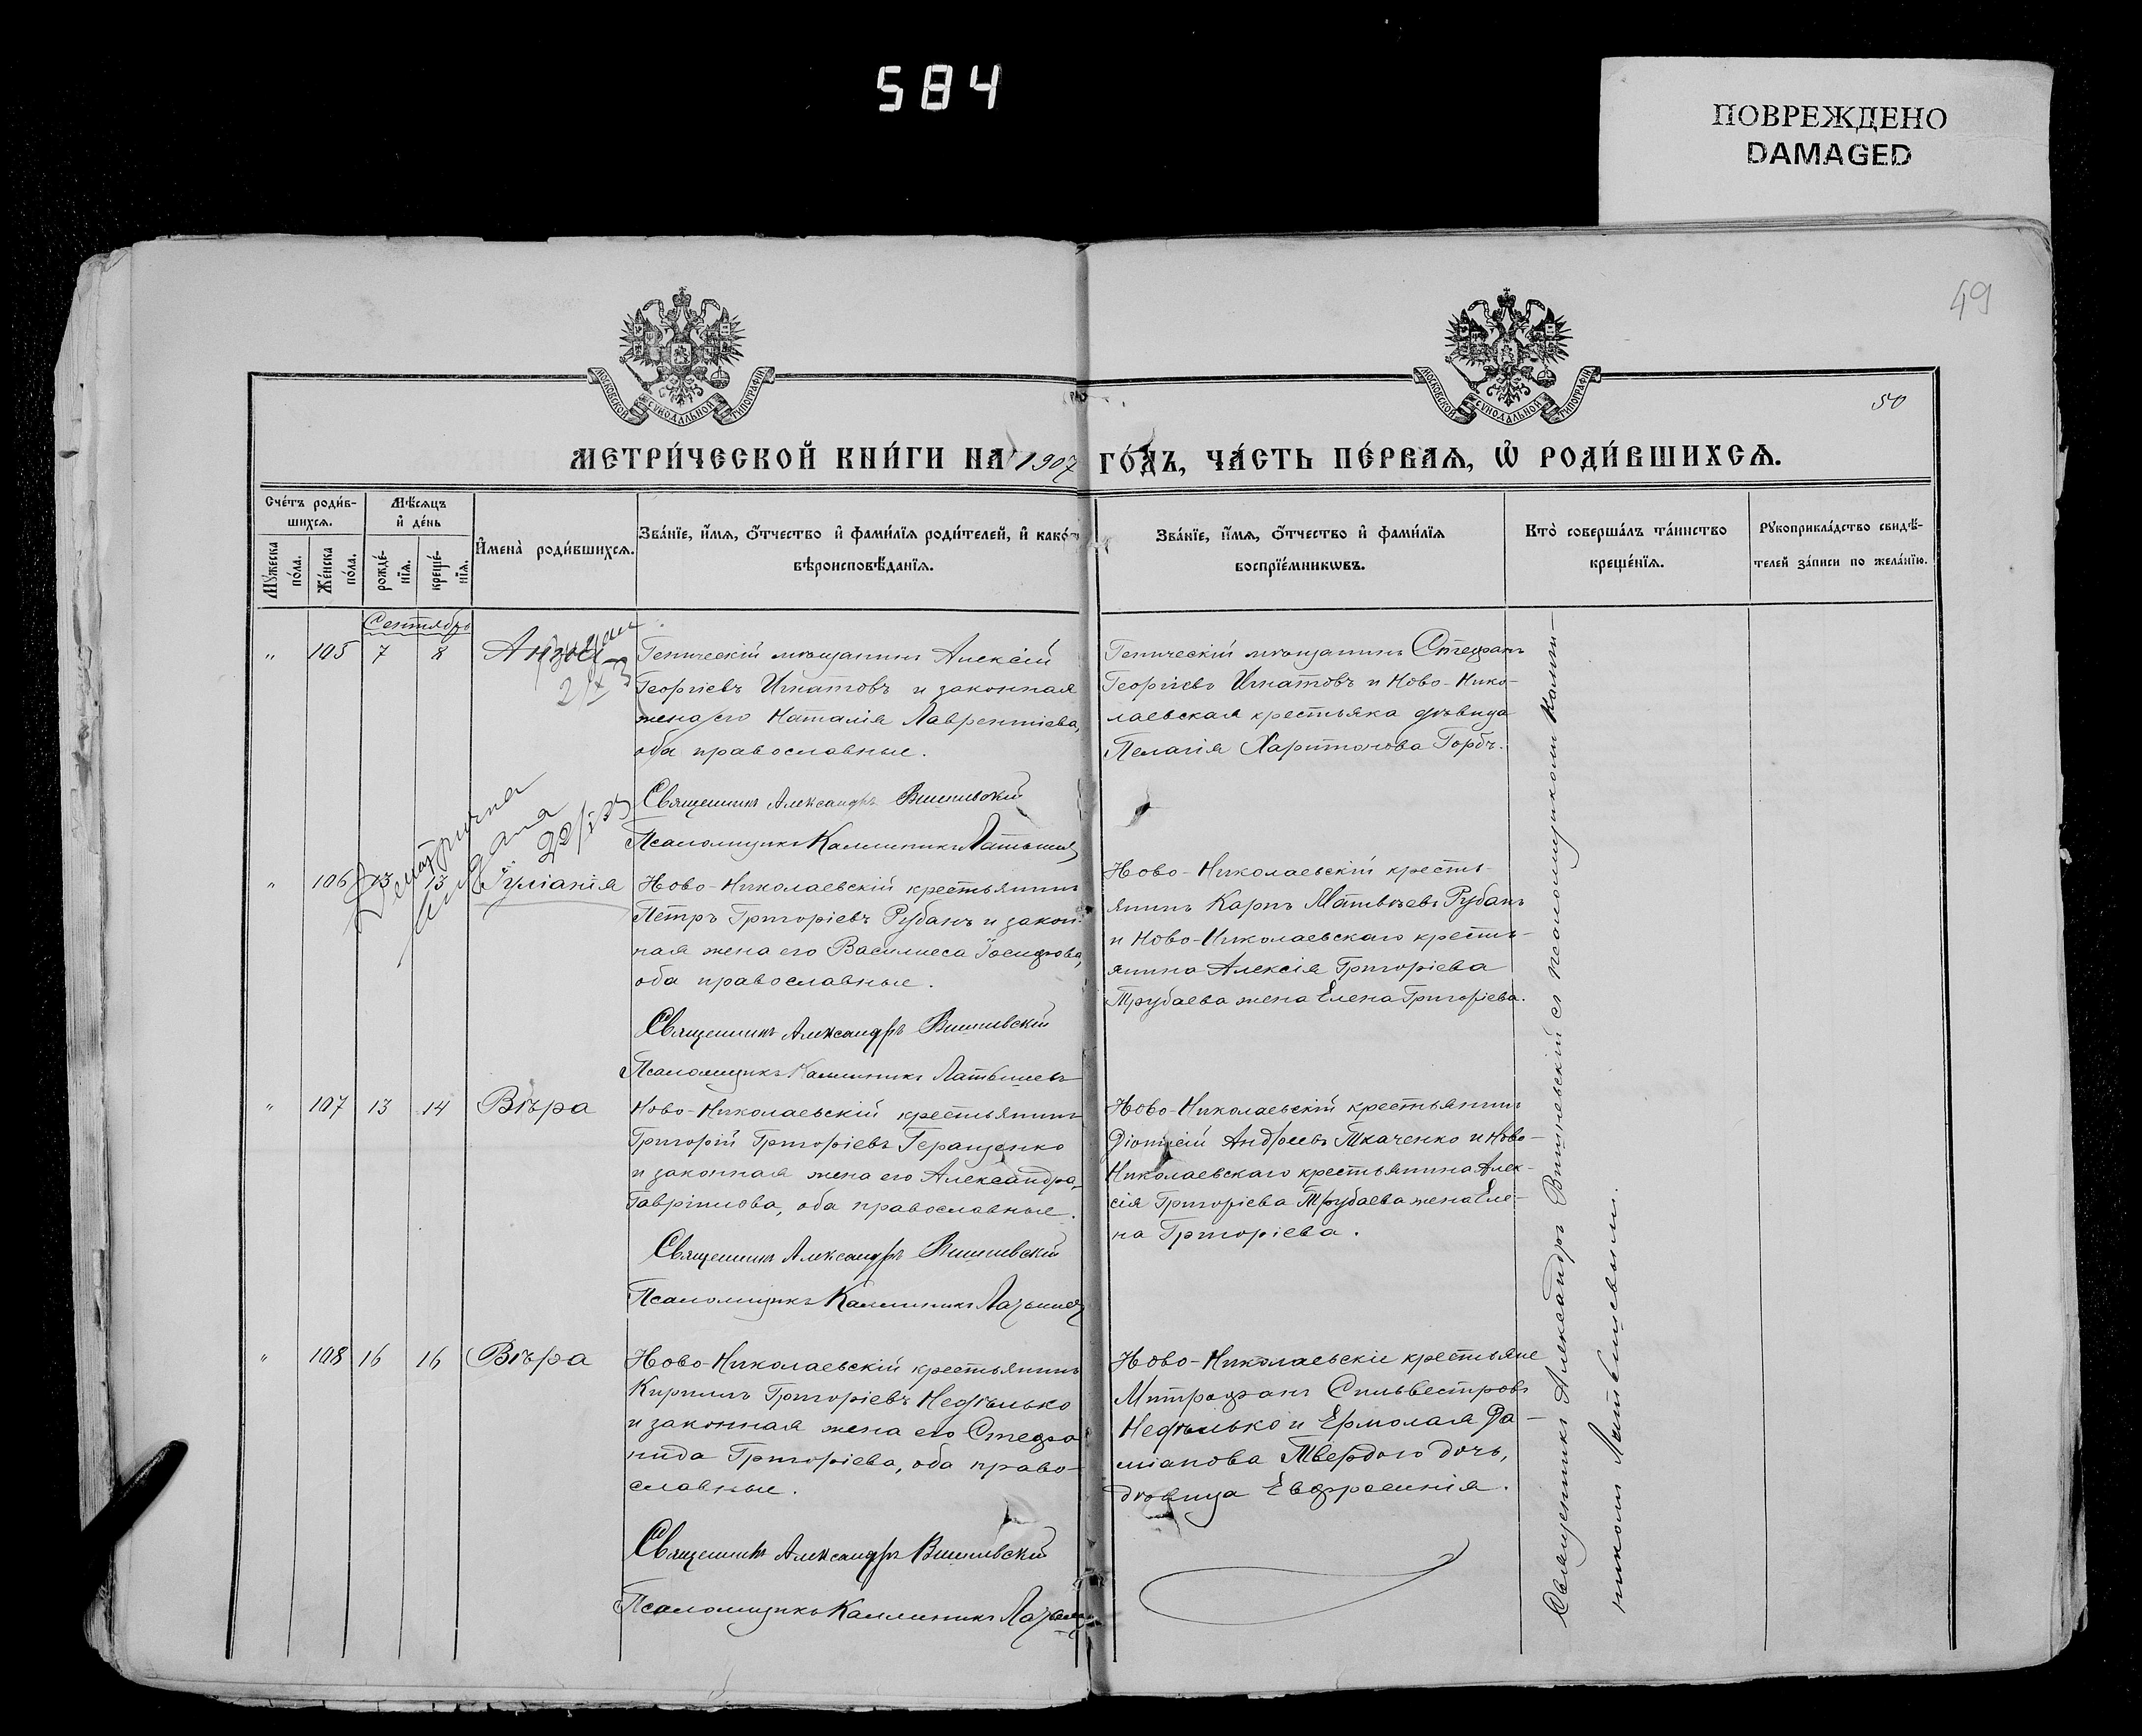 584
ПОВРЕЖДЕНО
DAMAGED
49
50
МОСКОВСКОЙ СѴНОДАЛЬНОЙ ТИПОГРАФІИ
МОСКОВСКОЙ СѴНОДАЛЬНОЙ ТИПОГРАФІИ
МЕТРИ́ЧЕСКОЙ КНИ́ГИ НА 1907 ГО́ДЪ, ЧА́СТЬ ПЕ́РВАѦ, Ѡ РОДИ́ВШИХСѦ.
Сче́тъ роди́в-
шихсѧ.
Мꙋ́жеска
по́ла.
Же́нска
по́ла.
Мѣ́сѧцъ
и҆ де́нь
рожде́-
нїѧ.
креще́-
нїѧ.
И҆мена̀ роди́вшихсѧ.
Зва́нїе, и҆́мѧ, ѻ҆́тчество и҆ фами́лїѧ роди́телей, и҆ како́гѡ
вѣроисповѣ́данїѧ.
Зва́нїе, и҆́мѧ, ѻ҆́тчество и҆ фами́лїѧ
воспрїе́мникѡвъ.
Кто̀ соверша́лъ та́инство
креще́нїѧ.
Рꙋкоприкла́дство свидѣ́-
телей за́писи по жела́нїю.
Сентябрь
" 105 7 8
Генический мѣщанинъ Алексій
Георгіевъ Игнатовъ и законная
жена его Наталія Лаврентіева,
оба православные.
Священникъ Александръ Вишневскій
Псаломщикъ Каллиникъ Латышевъ
Генический мѣщанинъ Стефанъ
Георгіевъ Игнатовъ и Ново-Нико-
лаевская крестьянка дѣвица
Пелагія Харитонова Горбъ.
22/I 23
" 106 13 13 Іуліанія
Ново-Николаевскій крестьянинъ
Петръ Григоріевъ Рубанъ и закон-
ная жена его Василиса Іосифова,
оба православные.
Священникъ Александръ Вишневскій
Псаломщикъ Каллиникъ Латышевъ
Ново-Николаевскій кресть-
янинъ Карпъ Матвѣевъ Рубанъ
и Ново-Николаевскаго кресть-
янина Алексія Григоріева
Трубаева жена Елена Григоріева.
" 107 13 14 Вѣра
Ново-Николаевскій крестьянинъ
Григорій Григоріевъ Геращенко
и законная жена его Александра
Гавріилова, оба православные.
Священникъ Александръ Вишневскій
Псаломщикъ Каллиникъ Латышевъ
Ново-Николаевскій крестьянинъ
Діонисій Андреевъ Ткаченко и Ново-
Николаевскаго крестьянина Алек-
сія Григоріева Трубаева жена Еле-
на Григоріева.
" 108 16 16 Вѣра
Ново-Николаевскій крестьянинъ
Кириллъ Григоріевъ Недѣлько
и законная жена его Стефа-
нида Григоріева, оба право-
славные.
Священникъ Александръ Вишневскій
Псаломщикъ Каллиникъ Латышевъ
Ново-Николаевскіе крестьяне
Митрофанъ Сильвестровъ
Недѣлько и Ермолая Да-
міанова Твердого дочь,
дѣвица Евфросинія.
Священникъ Александръ Вишневскій съ псаломщикомъ Калли-
никомъ Латышевымъ.